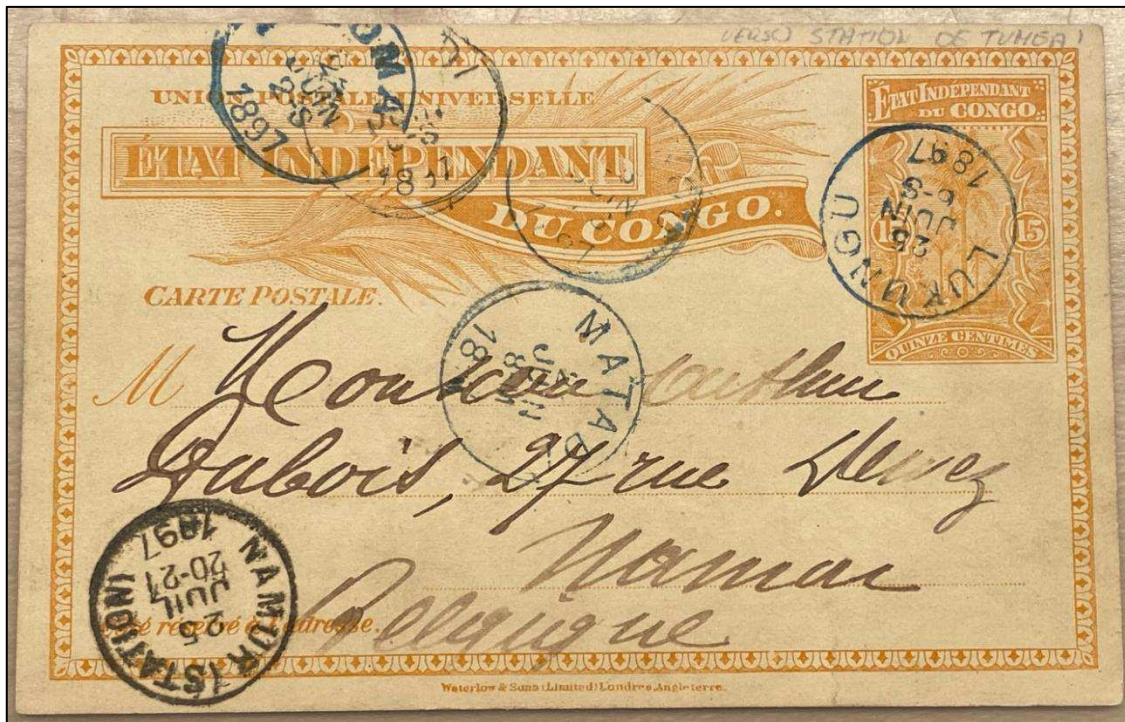 (VERSO STATION DE TUMBA)
UNION POSTALE UNIVERSELLE
ÉTAT INDÉPENDANT
DU CONGO.
CARTE POSTALE.
ETAT INDÉPENDANT
DU CONGO.
15 15
QUINZE CENTIMES
LUKUNGU
25
JUIN
6-S
1897
BOMA
JUIN
1897
MATADI
18
M Monsieur Arthur
Dubois, 27 rue Dewez
Namur
Belgique
NAMUR (STATION)
25
JUIL
20-21
1897
Côté réservé à l'adresse.
Waterlow & Sons (Limited) Londres, Angleterre.